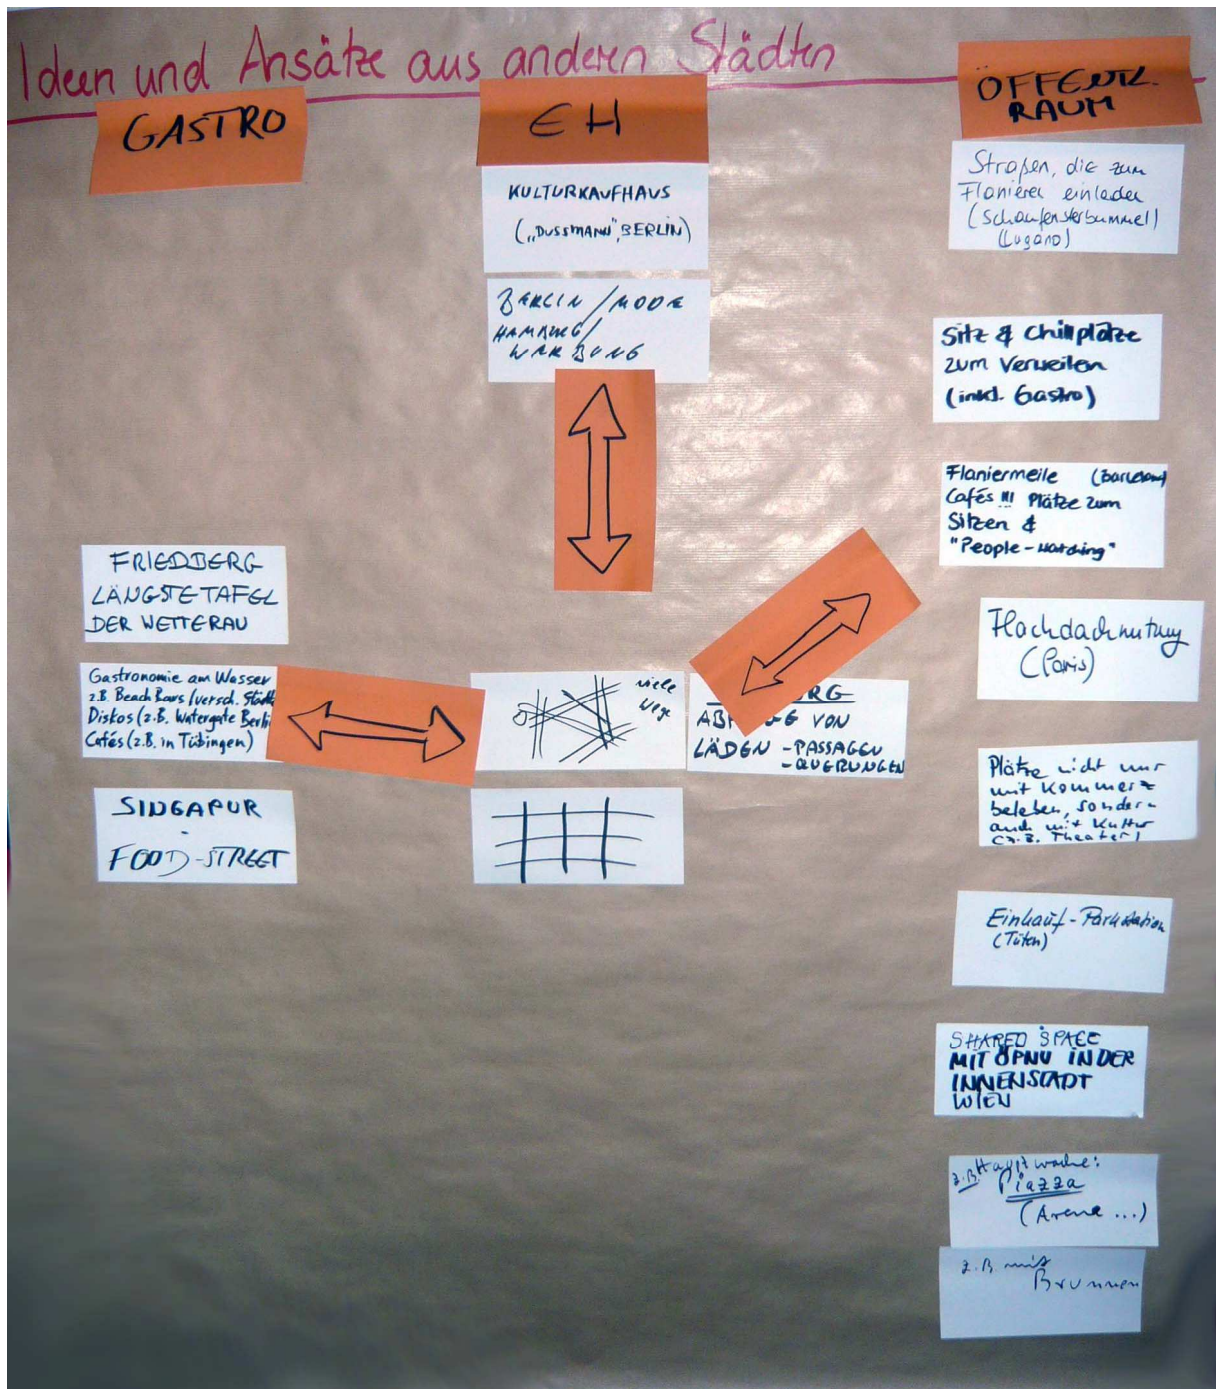 Ideen und Ansätze aus anderen Städten
GASTRO
FRIEDBERG
LÄNGSTE TAFEL
DER WETTERAU
Gastronomie am Wasser
z.B. Beach Bars (versch. Städt
Diskos (z.B. Watergate Berli
Cafés (z.B. in Tübingen)
SINGAPUR
-
FOOD-STREET
EH
KULTURKAUFHAUS
("DUSSMANN", BERLIN)
BERLIN / MODE
HAMBURG /
viele
Wege
RG
VON
LÄDEN - PASSAGEN
- QUERUNGEN
ÖFFENTL.
RAUM
Straßen, die zum
Flanieren einladen
(Schaufensterbummel)
(Lugano)
Sitz & Chillplätze
zum Verweilen
(inkl. Gastro)
Flaniermeile (Barcelona)
Cafés !!! Plätze zum
Sitzen &
"People-watching"
Flachdachnutzung
(Paris)
Plätze nicht nur
mit Kommerz
beleben, sondern
auch mit Kultur
(z.B. Theater)
Einkauf-Parkstation
(Tüten)
SHARED SPACE
MIT ÖPNV IN DER
INNENSTADT
WIEN
z.B. Hauptwache:
Piazza
(Arena ...)
z.B. mit
Brunnen